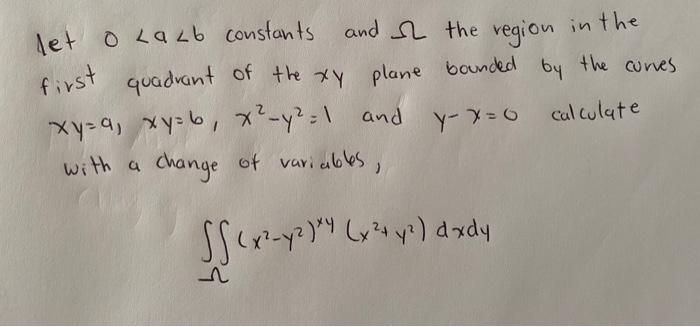 let 0 <a<b constants and Ω the region in the
first quadrant of the xy plane bounded by the curves
xy=a, xy=b, x²-y²=1 and y-x=0 calculate
with a change of variables,
∬_Ω (x²-y²)^xy (x²+y²) dxdy